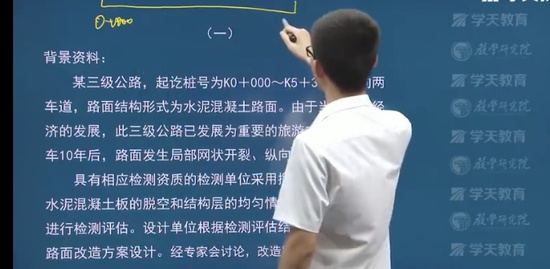 0+000
学天教育
(一)
教学研究院
背景资料:
某三级公路,起讫桩号为K0+000~K5+3 两
学天教育
车道,路面结构形式为水泥混凝土路面。由于 经
教学研究院
济的发展,此三级公路已发展为重要的旅游
车10年后,路面发生局部网状开裂、纵向
学天教育
具有相应检测资质的检测单位采用
水泥混凝土板的脱空和结构层的均匀情
学天教育
进行检测评估。设计单位根据检测评估结
教学研究院
路面改造方案设计。经专家会讨论,改造